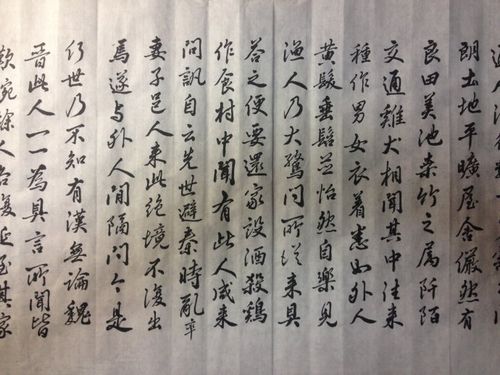 朗土地平曠屋舍儼然有
良田美池桒竹之属阡陌
交通雞犬相聞其中往来
種作男女衣着悉如外人
黄髮垂髫並怡然自樂見
漁人乃大驚問所從来具
荅之便要還家設酒殺鷄
作食村中聞有此人咸来
問訊自云先世避秦時亂率
妻子邑人来此絶境不復出
焉遂与外人間隔問今是
何世乃不知有漢無論魏
晋此人一一為具言所聞皆
歎惋餘人各復延至其家